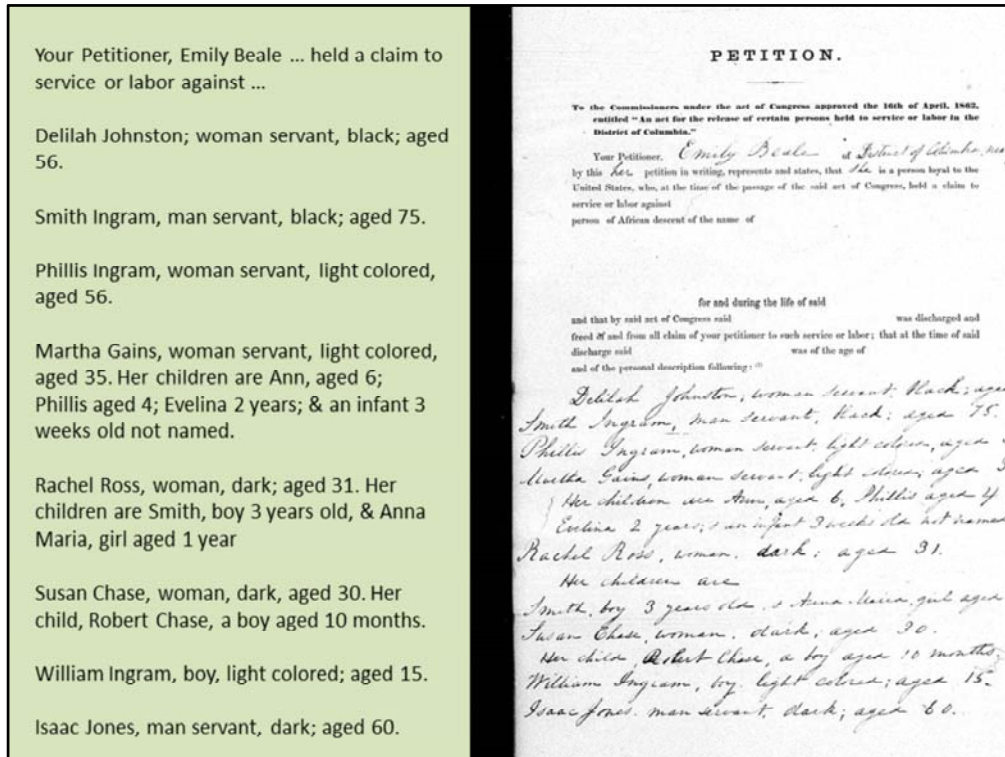 Your Petitioner, Emily Beale ... held a claim to
service or labor against ...
Delilah Johnston; woman servant, black; aged
56.
Smith Ingram, man servant, black; aged 75.
Phillis Ingram, woman servant, light colored,
aged 56.
Martha Gains, woman servant, light colored,
aged 35. Her children are Ann, aged 6;
Phillis aged 4; Evelina 2 years; & an infant 3
weeks old not named.
Rachel Ross, woman, dark; aged 31. Her
children are Smith, boy 3 years old, & Anna
Maria, girl aged 1 year
Susan Chase, woman, dark, aged 30. Her
child, Robert Chase, a boy aged 10 months.
William Ingram, boy, light colored; aged 15.
Isaac Jones, man servant, dark; aged 60.
PETITION.
To the Commissioners under the act of Congress approved the 16th of April, 1862,
entitled "An act for the release of certain persons held to service or labor in the
District of Columbia."
Your Petitioner, Emily Beale of District of Columbia,
by this her petition in writing, represents and states, that she is a person loyal to the
United States, who, at the time of the passage of the said act of Congress, held a claim to
service or labor against
person of African descent of the name of
for and during the life of said
and that by said act of Congress said was discharged and
freed of and from all claim of your petitioner to such service or labor; that at the time of said
discharge said was of the age of
and of the personal description following:
Delilah Johnston, woman servant, black; aged
Smith Ingram, man servant, black; aged 75.
Phillis Ingram, woman servant, light colored, aged
Martha Gains, woman servant, light colored; aged
Her children are Ann, aged 6, Phillis aged 4
Evelina 2 years; & an infant 3 weeks old not named
Rachel Ross, woman, dark; aged 31.
Her children are
Smith, boy 3 years old, & Anna Maria, girl aged
Susan Chase, woman, dark; aged 30.
Her child, Robert Chase, a boy aged 10 months;
William Ingram, boy, light colored; aged 15.
Isaac Jones, man servant, dark; aged 60.